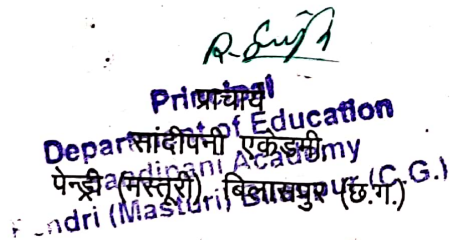 Principal
प्राचार्य
Department of Education
सांदीपनी एकेडमी
Sandipani Academy
पेन्ड्री (मस्तूरी), बिलासपुर (छ.ग.)
Pendri (Masturi) Bilaspur (C.G.)